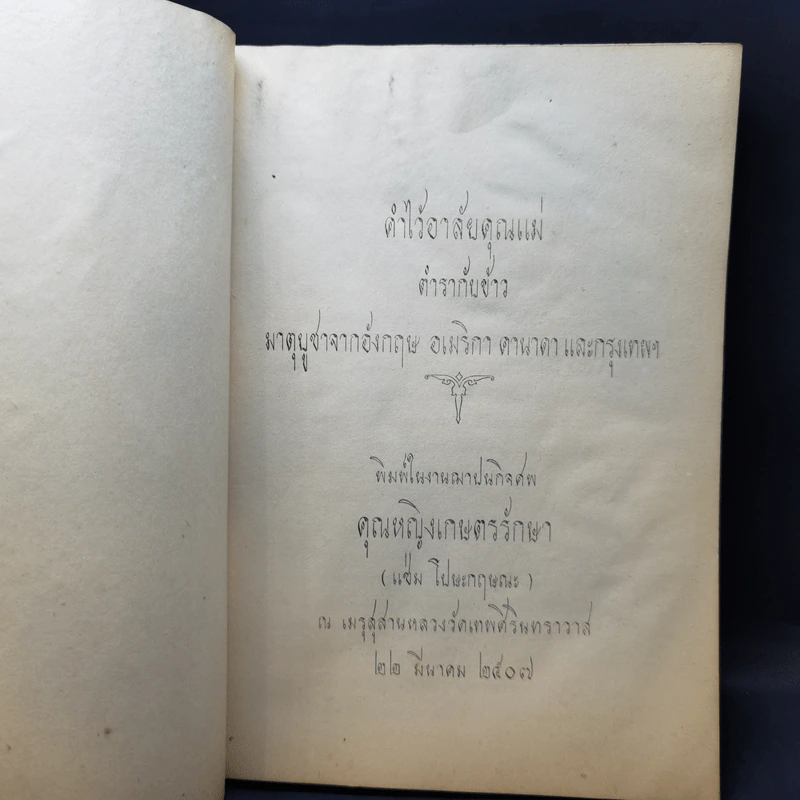 คำไว้อาลัยคุณแม่
ตำรากับข้าว
มาตุบูชาจากอังกฤษ อเมริกา คานาดา และกรุงเทพฯ
พิมพ์ในงานฌาปนกิจศพ
คุณหญิงเกษตรรักษา
( แช่ม โปษะกฤษณะ )
ณ เมรุสุสานหลวงวัดเทพศิรินทราวาส
๒๒ มีนาคม ๒๕๐๗